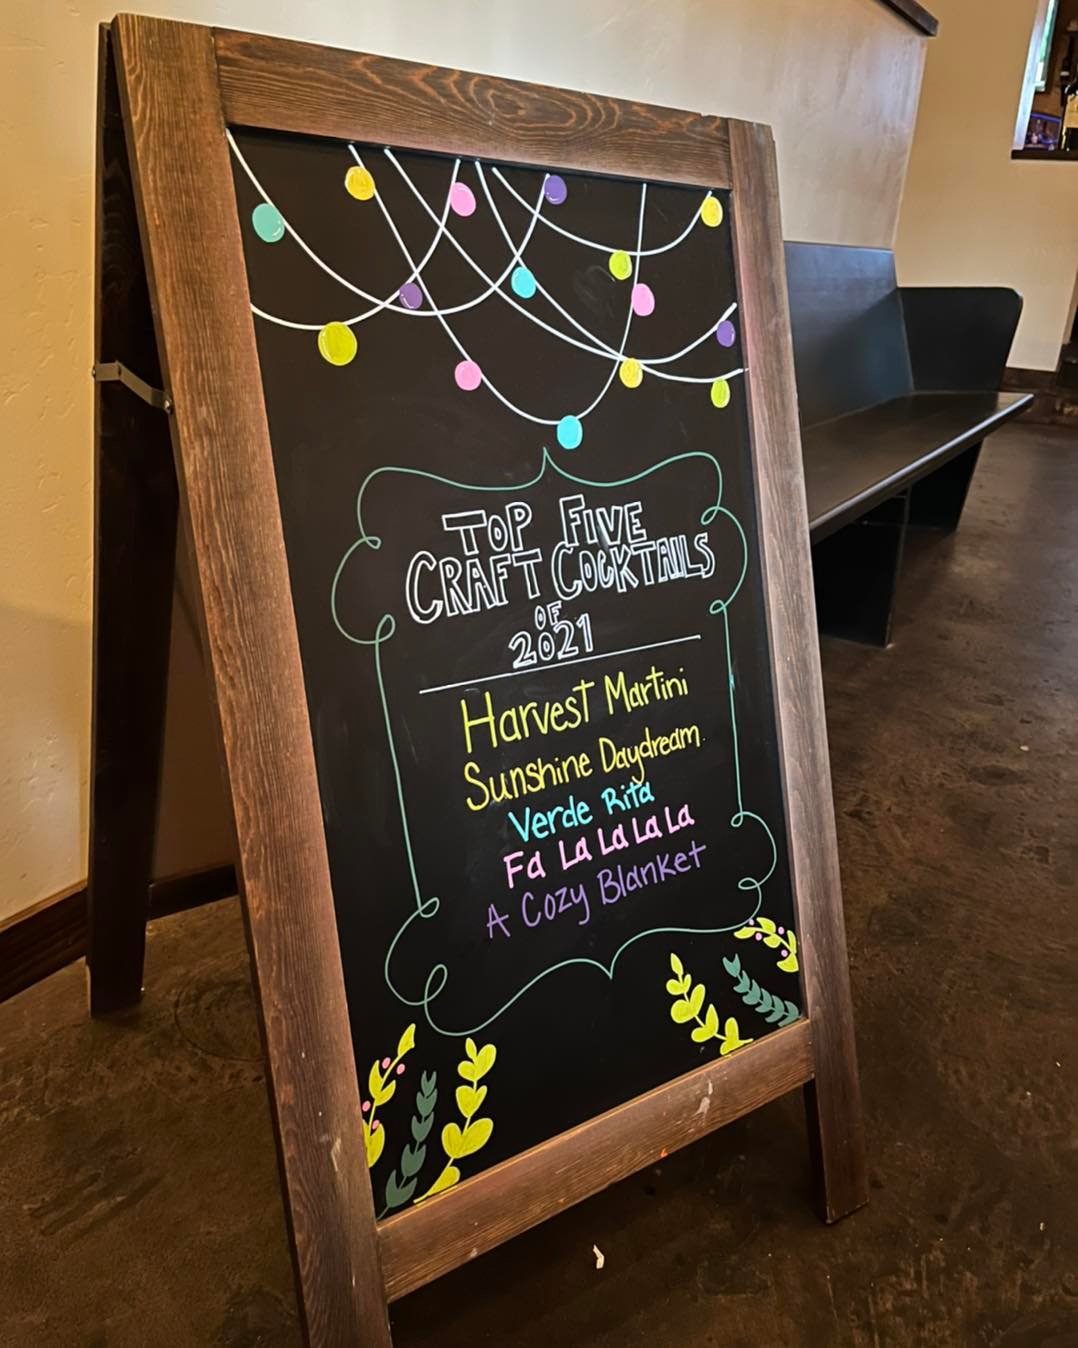 Top Five
Craft Cocktails
of
2021
Harvest Martini
Sunshine Daydream
Verde Rita
Fa La La La La
A Cozy Blanket